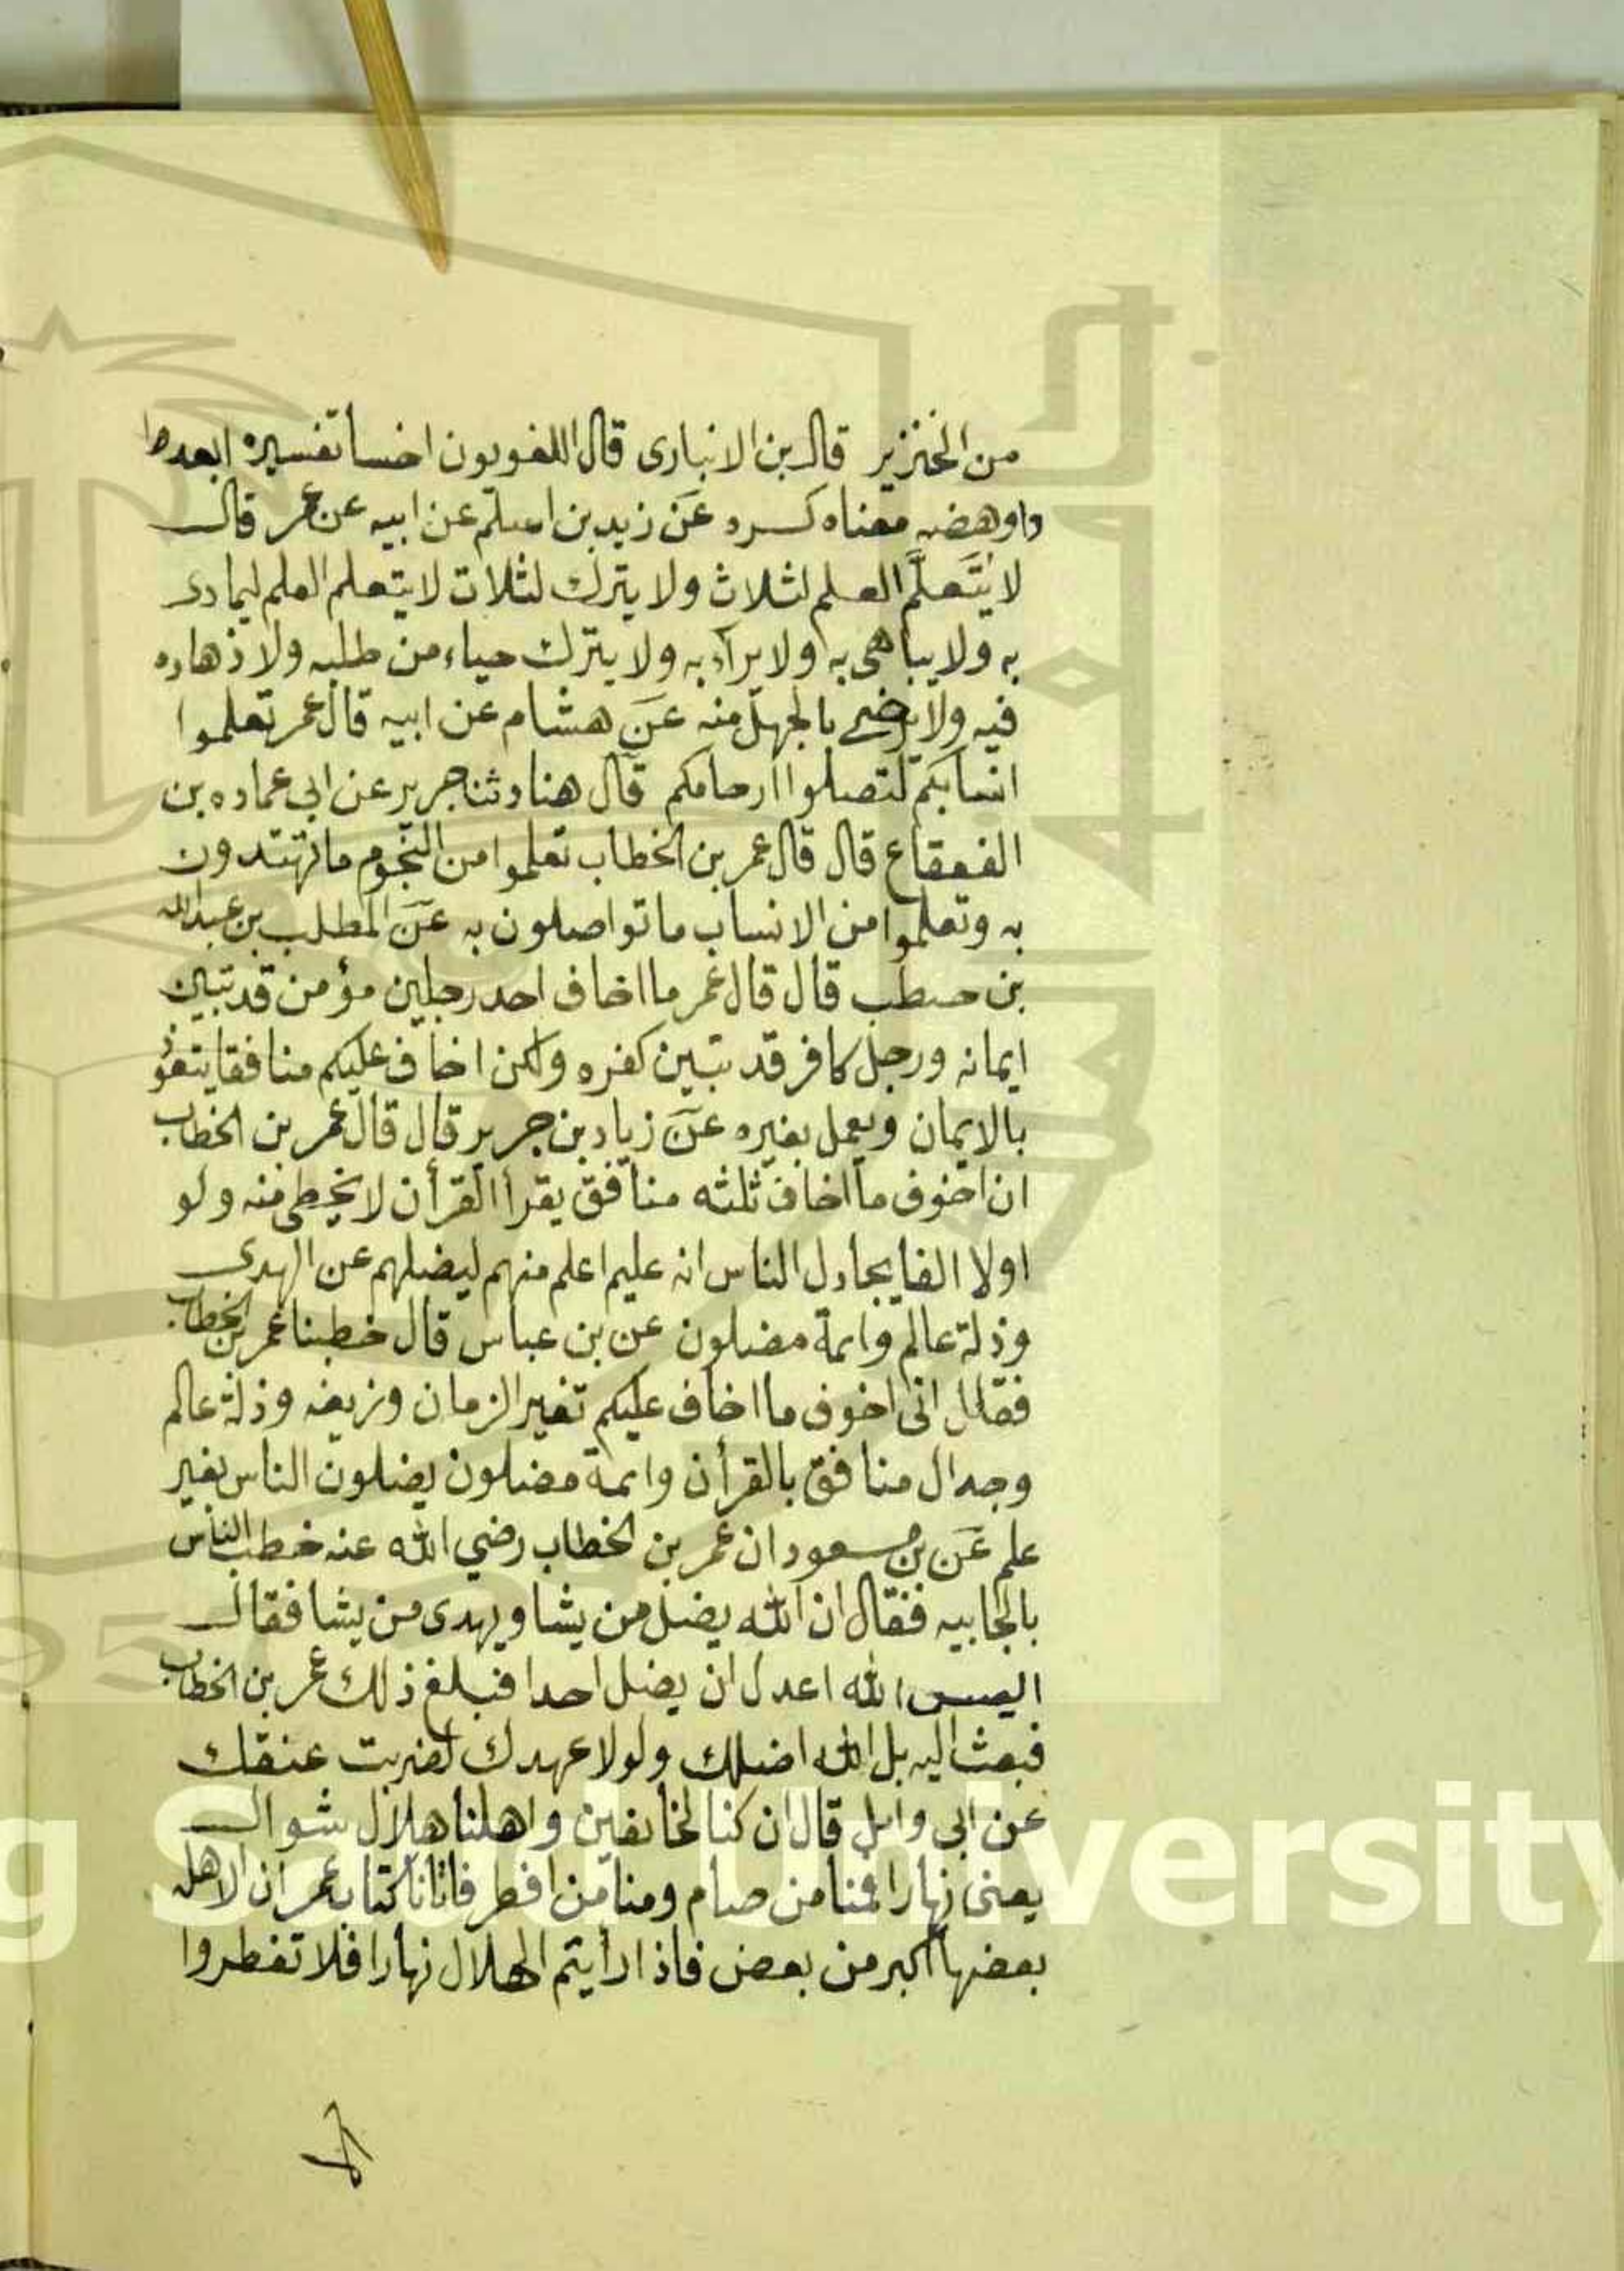 من الخنزير قال بن الانباري قال اللغويون اخسا تفسيره ابعد
واوهضه معناه كسره عن زيد بن اسلم عن ابيه عن عمر قال
لا يتعلم العلم لثلاث ولا يترك لثلاث لا يتعلم العلم ليمادى
به ولا يباهى به ولا يراء به ولا يترك حياء من طلبه ولا ذهاده
فيه ولا يرضى بالجهل منه عن هشام عن ابيه قال عمر تعلموا
انسابكم لتصلوا ارحامكم قال هناد ثنا جرير عن ابي عماده بن
القعقاع قال قال عمر بن الخطاب تعلموا من النجوم ما تهتدون
به وتعلموا من الانساب ما تواصلون به عن المطلب بن عبدالله
بن حنطب قال قال عمر ما اخاف احد رجلين مؤمن قد تبين
ايمانه ورجل كافر قد تبين كفره ولكن اخاف عليكم منافقا يتعوذ
بالايمان ويعمل بغيره عن زياد بن جرير قال قال عمر بن الخطاب
ان اخوف ما اخاف ثلثه منافق يقرأ القرأن لا يخطى منه ولو
اولا الفا يجادل الناس انه عليم اعلم منهم ليضلهم عن الهدى
وذلة عالم وايمة مضلون عن بن عباس قال خطبنا عمر بن الخطاب
فقال انى اخوف ما اخاف عليكم تغير الزمان وزيغه وذلة عالم
وجدال منافق بالقرأن وايمة مضلون يضلون الناس بغير
علم عن بن مسعود ان عمر بن الخطاب رضي الله عنه خطب الناس
بالجابيه فقال ان الله يضل من يشا ويهدى من يشا فقال
اليس الله اعدل ان يضل احدا فبلغ ذلك عمر بن الخطاب
فبعث اليه بل الله اضلك ولولا عهدك لضربت عنقك
عن ابي وايل قال ان كنا لخانقين واهلنا هلال شوال
يعنى نهارا فمنا من صام ومنا من افطر فاتانا كتاب عمر ان الاهله
بعضها اكبر من بعض فاذا رأيتم الهلال نهارا فلا تفطروا
King Saud University